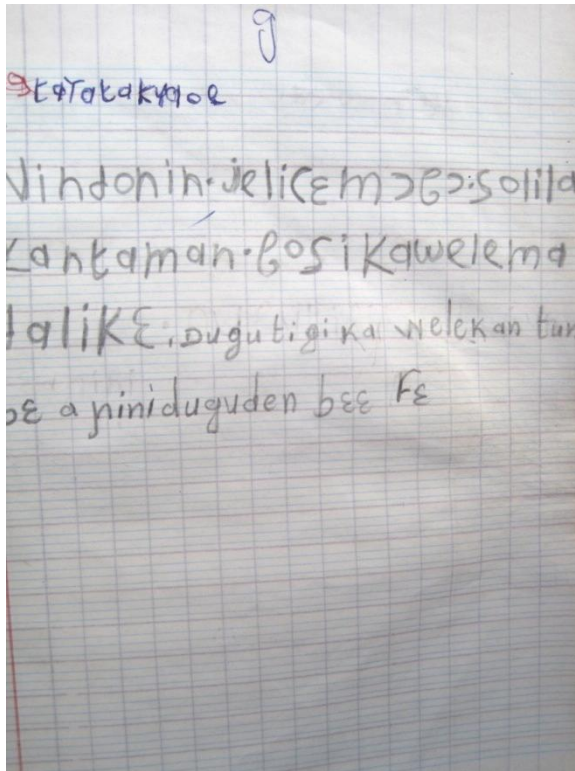 g
Vindonin. jelicɛmɔgɔ. solila
Lankaman. bosikawelema
dalikɛ. Dugutigi ka welekan tun
bɛ a ɲiniduguden bɛɛ fɛ